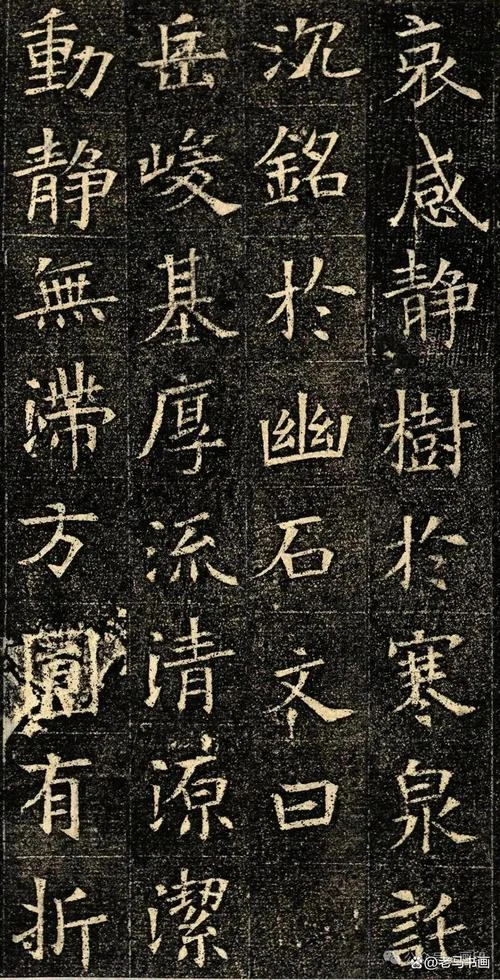 哀感静樹於寒泉託
沉銘於幽石文曰
岳峻基厚流清源潔
動静無滞方圓有折
老马书画